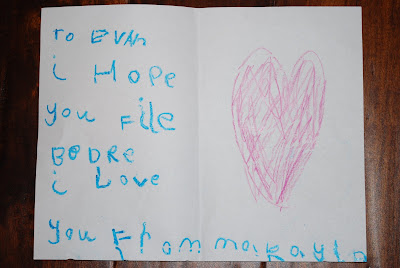 to EVAN
i HOPE
you File
BEDRE
i Love
you From makayla